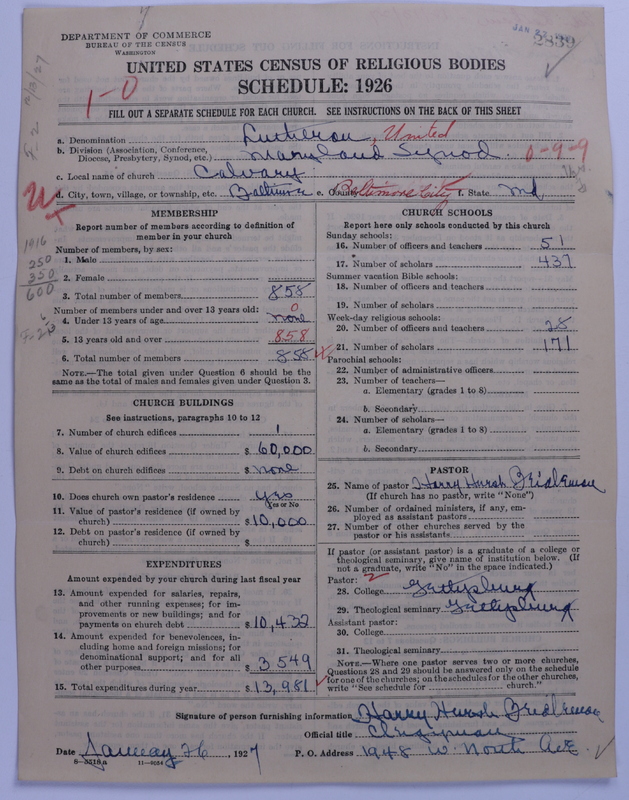 DEPARTMENT OF COMMERCE
BUREAU OF THE CENSUS
WASHINGTON
2839
UNITED STATES CENSUS OF RELIGIOUS BODIES
SCHEDULE: 1926
1-0
FILL OUT A SEPARATE SCHEDULE FOR EACH CHURCH. SEE INSTRUCTIONS ON THE BACK OF THIS SHEET
a. Denomination Lutheran, United
b. Division (Association, Conference, Diocese, Presbytery, Synod, etc.) Maryland Synod. 0-9-9
c. Local name of church Calvary
d. City, town, village, or township, etc. Baltimore e. County Baltimore City f. State Md
1916
250
350
600
MEMBERSHIP
Report number of members according to definition of member in your church
Number of members, by sex:
1. Male
2. Female
3. Total number of members 858
Number of members under and over 13 years old: 0
4. Under 13 years of age none
5. 13 years old and over 858
6. Total number of members 858
NOTE.—The total given under Question 6 should be the same as the total of males and females given under Question 3.
CHURCH BUILDINGS
See instructions, paragraphs 10 to 12
7. Number of church edifices 1
8. Value of church edifices $ 60,000
9. Debt on church edifices $ none
10. Does church own pastor's residence yes
Yes or No
11. Value of pastor's residence (if owned by church) $ 10,000
12. Debt on pastor's residence (if owned by church) $
EXPENDITURES
Amount expended by your church during last fiscal year
13. Amount expended for salaries, repairs, and other running expenses; for improvements or new buildings; and for payments on church debt $ 10,432
14. Amount expended for benevolences, including home and foreign missions; for denominational support; and for all other purposes $ 3549
15. Total expenditures during year $ 13,981
CHURCH SCHOOLS
Report here only schools conducted by this church
Sunday schools:
16. Number of officers and teachers 51
17. Number of scholars 437
Summer vacation Bible schools:
18. Number of officers and teachers
19. Number of scholars
Week-day religious schools:
20. Number of officers and teachers 28
21. Number of scholars 171
Parochial schools:
22. Number of administrative officers
23. Number of teachers—
a. Elementary (grades 1 to 8)
b. Secondary
24. Number of scholars—
a. Elementary (grades 1 to 8)
b. Secondary
PASTOR
25. Name of pastor Harry Hursh Beidleman
(If church has no pastor, write "None")
26. Number of ordained ministers, if any, employed as assistant pastors
27. Number of other churches served by the pastor or his assistants
If pastor (or assistant pastor) is a graduate of a college or theological seminary, give name of institution below. (If not a graduate, write "No" in the space indicated.)
Pastor: 2
28. College Gettysburg
29. Theological seminary Gettysburg
Assistant pastor:
30. College
31. Theological seminary
NOTE.—Where one pastor serves two or more churches, Questions 28 and 29 should be answered only on the schedule for one of the churches; on the schedules for the other churches, write "See schedule for church."
Signature of person furnishing information Harry Hursh Beidleman
Official title Clergyman
Date January 26, 1927 P. O. Address 1948 W. North Ave
8—5518a 11—9684